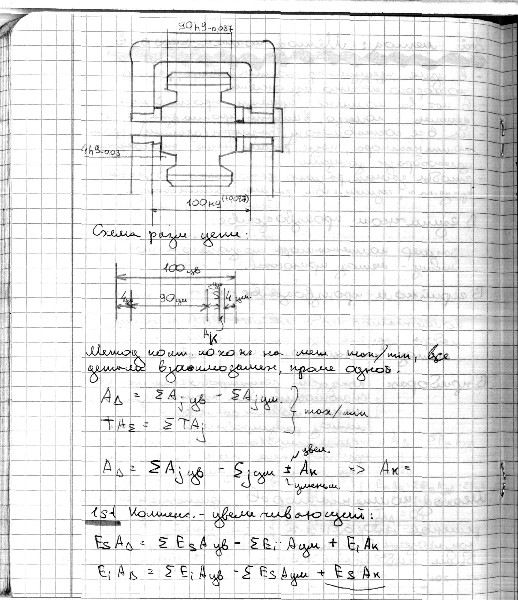 90h9-0.087
4h9-0.03
100 (+0.087)
Схема разм цепи:
100 ув
4 ум 90 ум S 4 ум.
AK
Метод комп похож на мет max/min, все
детали взаимозамен, кроме одной.
A∆ = ΣAj ув - ΣAj ум.
TAΣ = ΣTAj
max/min
увел.
A∆ = ΣAj ув - Σj ум ± AK => AK =
уменьш
1й Компенс. - увеличивающий:
EsA∆ = ΣEsAув - ΣEiAум + EiAK
EiA∆ = ΣEiAув - ΣEsAум + EsAK